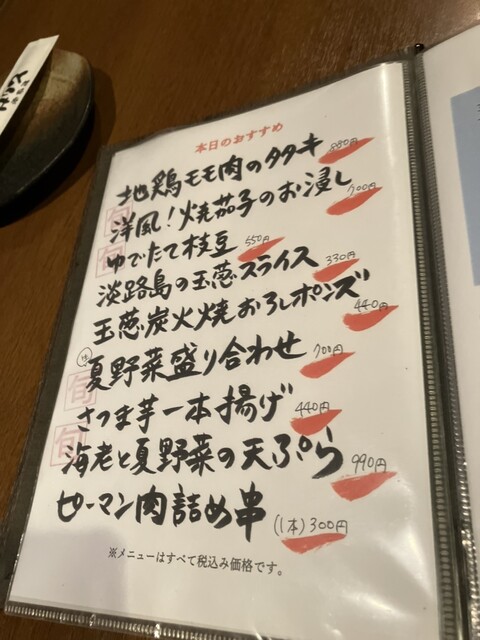 本日のおすすめ
地鶏モモ肉のタタキ 880円
洋風！焼茄子のお浸し 700円
旬
ゆでたて枝豆 550円
旬
淡路島の玉葱スライス 330円
玉葱炭火焼おろしポンズ 440円
夏野菜盛り合わせ 700円
旬
さつま芋一本揚げ 440円
旬
海老と夏野菜の天ぷら 990円
ピーマン肉詰め串 (1本) 300円
※メニューはすべて税込み価格です。